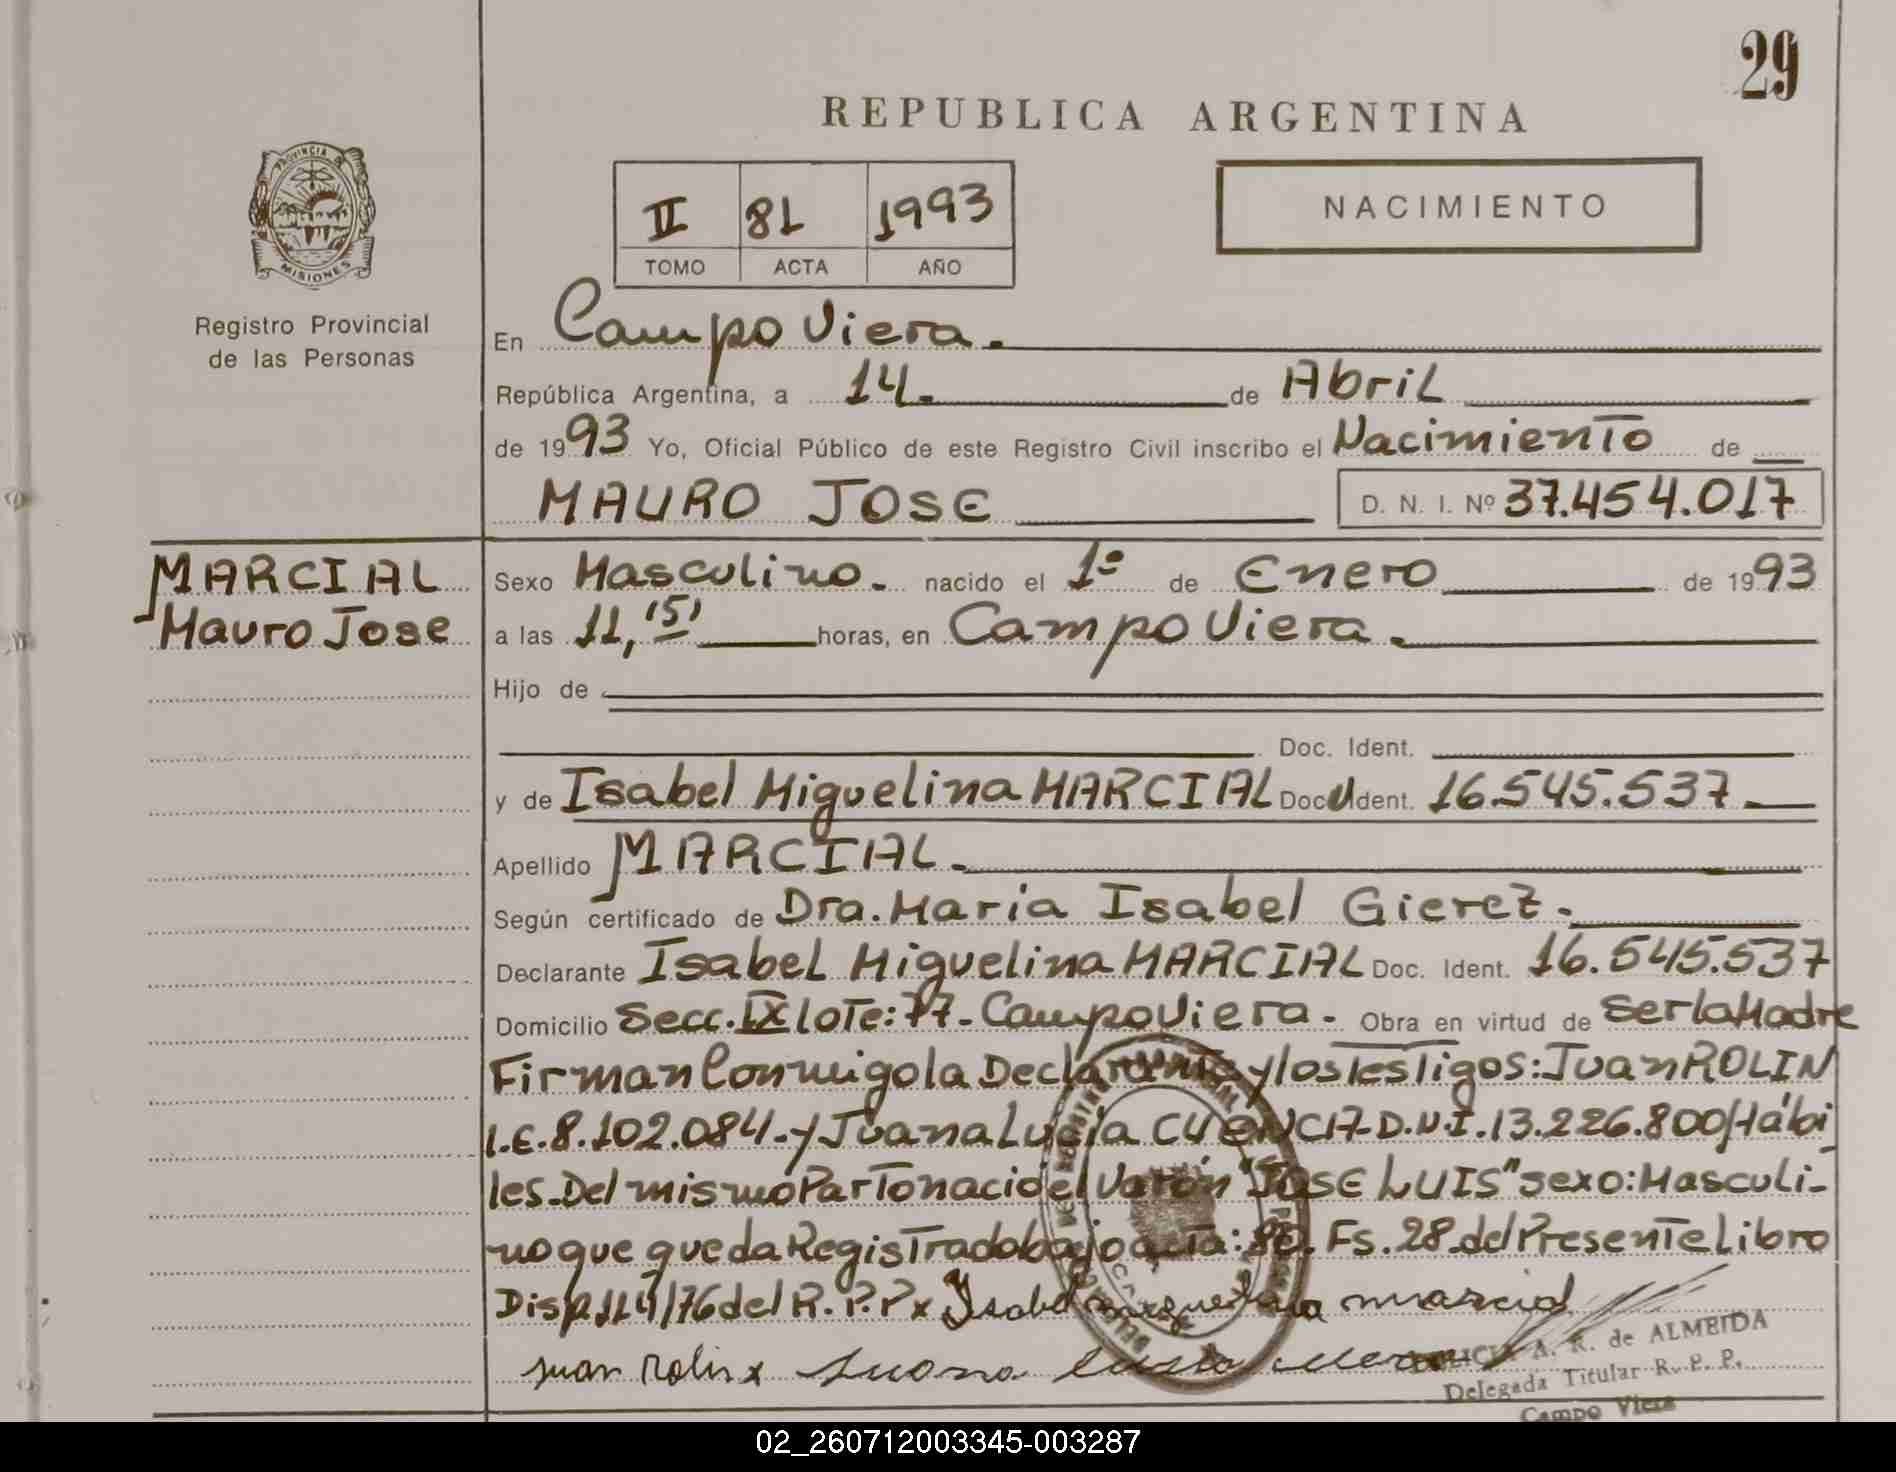 29
REPUBLICA ARGENTINA
PROVINCIA DE
MISIONES
Registro Provincial
de las Personas
II 81 1993
TOMO ACTA AÑO
NACIMIENTO
En Campo Viera.
República Argentina, a 14. de Abril
de 1993 Yo, Oficial Público de este Registro Civil inscribo el Nacimiento de
MAURO JOSE D. N. I. Nº 37.454.017
MARCIAL
Mauro Jose
Sexo Masculino. nacido el 1º de Enero de 1993
a las 11,15' horas, en Campo Viera.
Hijo de
Doc. Ident.
y de Isabel Miguelina MARCIAL Doc. Ident. 16.545.537.
Apellido MARCIAL.
Según certificado de Dra. Maria Isabel Gierez.
Declarante Isabel Miguelina MARCIAL Doc. Ident. 16.545.537
Domicilio Secc. IX Lote: 77. Campo Viera. Obra en virtud de ser la Madre
Firman Conmigo la Declarante y los testigos: Juan ROLIN
L.E. 8.102.084. y Juana Lucia CUENCA D.N.I. 13.226.800 Hábi
les. Del mismo Parto nacio el Varón "JOSE LUIS" sexo: Masculi-
no que queda Registrado bajo acta: 80. Fs. 28. del Presente Libro
Disp 114/76 del R.P.P x Isabel miguelina marcial
juan Rolin x Juana Lucia
A. R. de ALMEIDA
Delegada Titular R. P. P.
Campo Viera
02_260712003345-003287